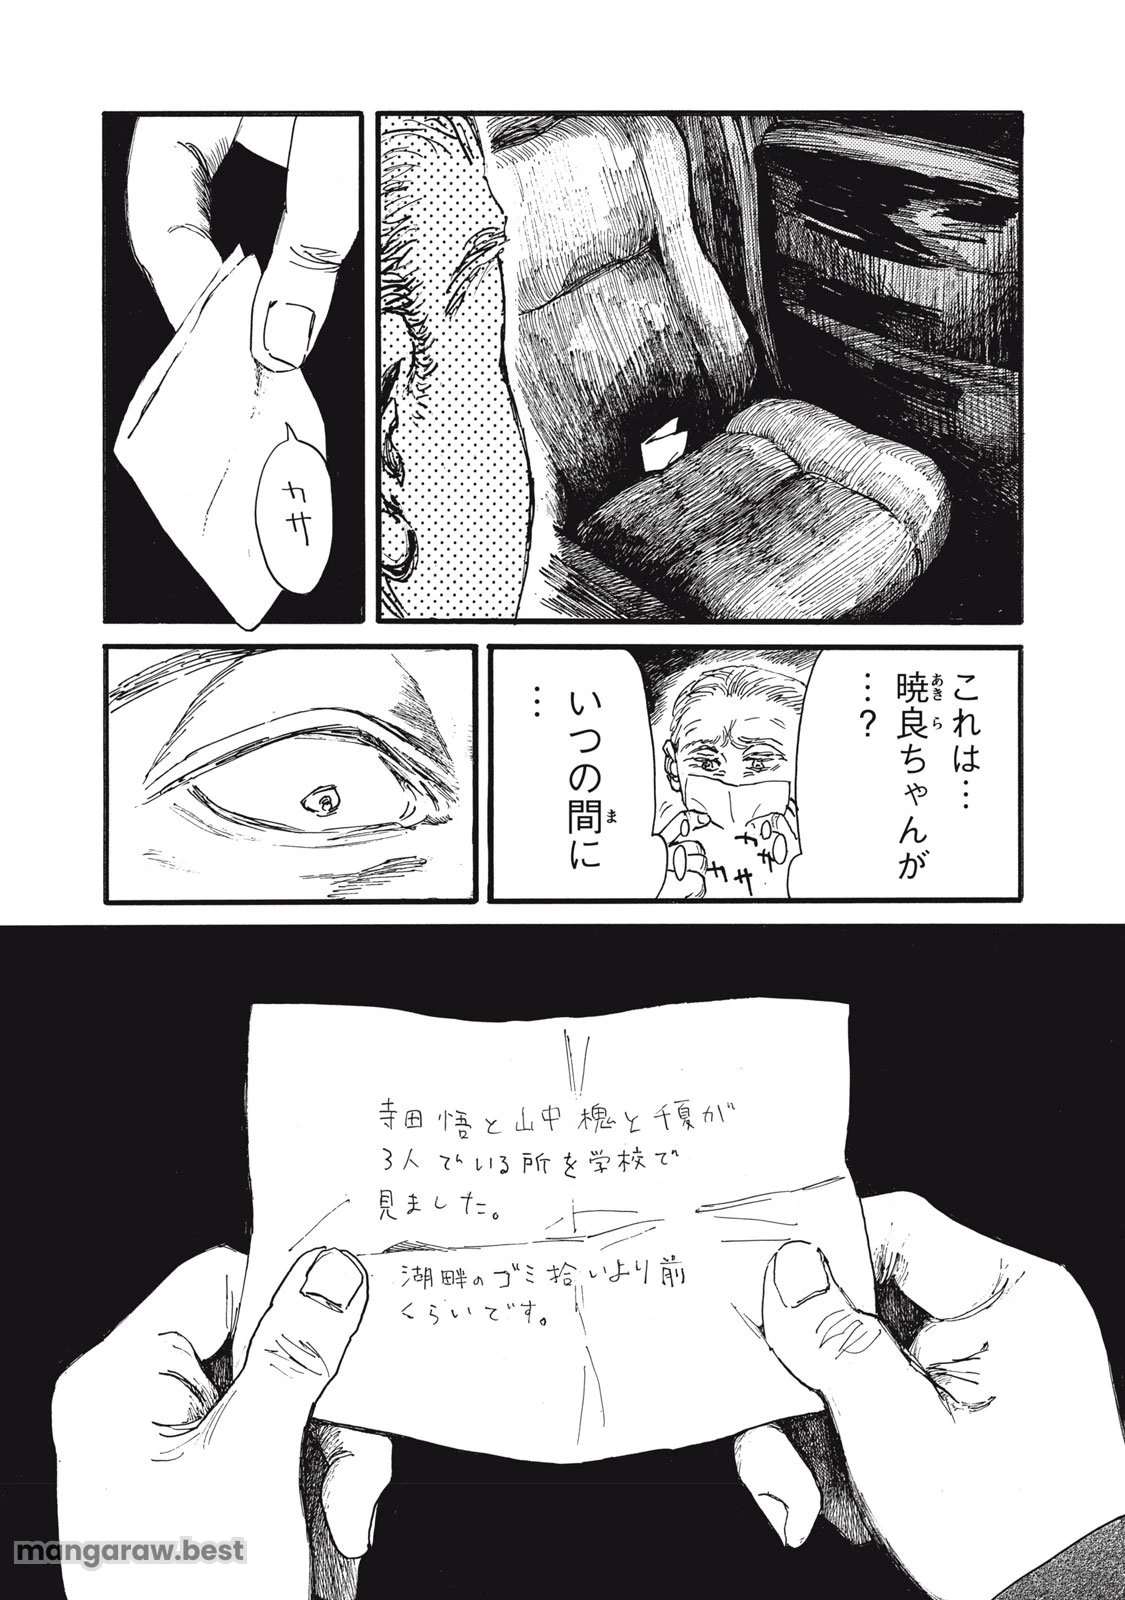 カサ
これは…
暁良ちゃんが
…?
あきら
いつの間に
…
ま
カサ
カサ
寺田 悟と山中 槐と千夏が
3人でいる所を学校で
見ました。
湖畔のゴミ拾いより前
くらいです。
mangaraw.best